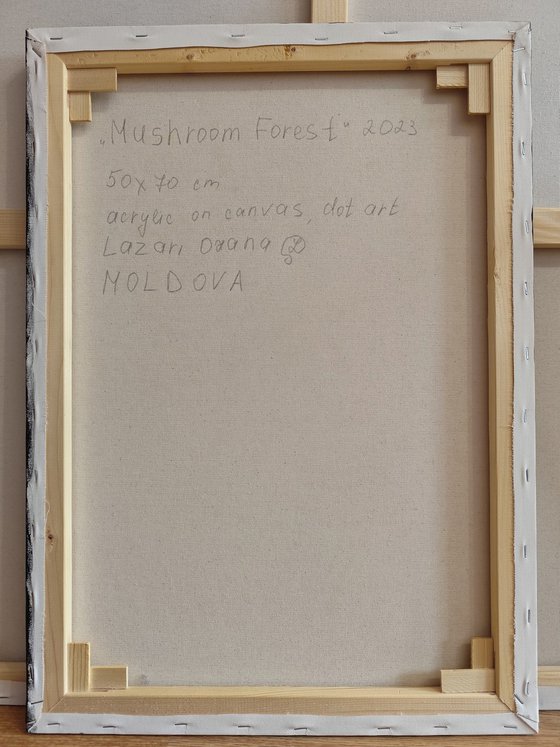 „Mushroom Forest“ 2023
50x70 cm
acrylic on canvas, dot art
Lazari Oxana
MOLDOVA